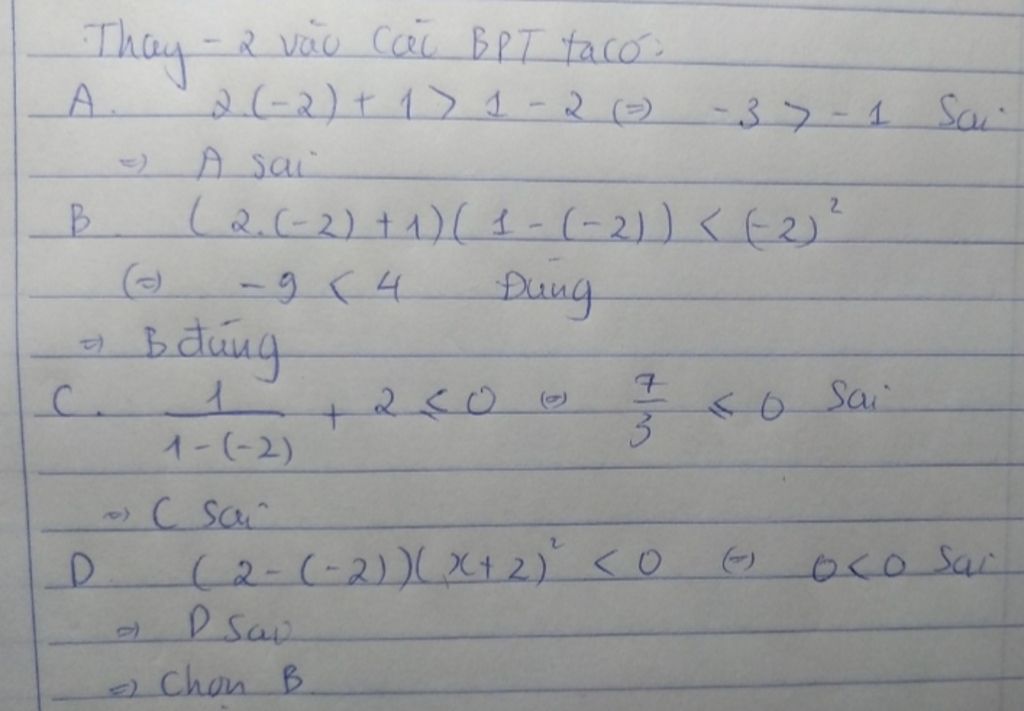 Thay -2 vào các BPT ta có:
A. 2.(-2) + 1 > 1 - 2 (=) -3 > -1 Sai
=) A sai
B (2.(-2) + 1)(1 - (-2)) < (-2)²
(=) -9 < 4 Đúng
=) B đúng
C. 1/(1-(-2)) + 2 ≤ 0 (=) 7/3 ≤ 0 Sai
=) C sai
D (2 - (-2))(x+2)² < 0 (=) 0<0 Sai
=) D sai
=) Chọn B